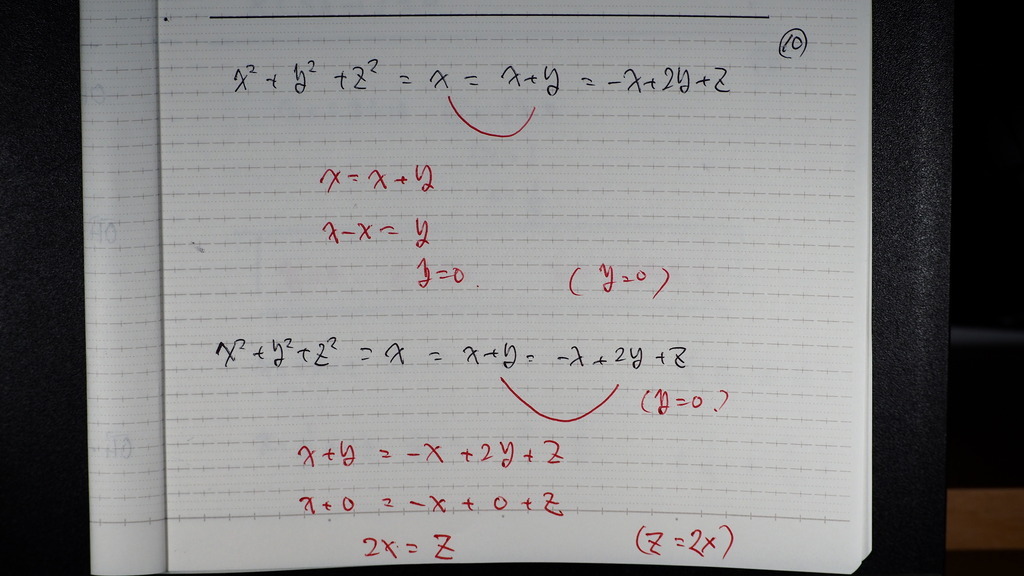 (10)
x² + y² + z² = x = x+y = -x+2y+z
x = x + y
x-x = y
y=0. (y=0)
x²+y²+z² = x = x+y = -x+2y+z
(y=0)
x+y = -x +2y+z
x+0 = -x + 0 +z
2x = z (z=2x)